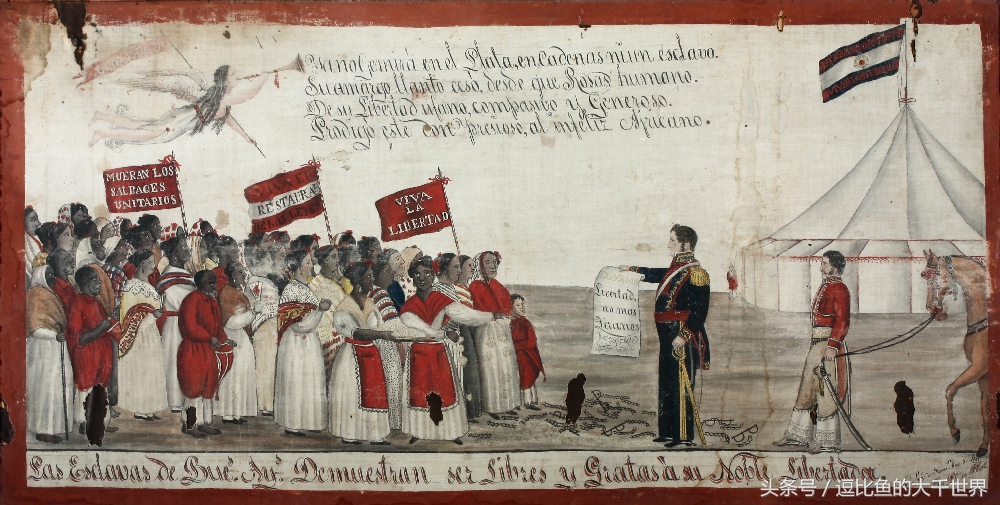 Ya no Gemirá en el Plata, en Cadenas ni un esclavo.
Su amargo llanto cesó, desde que Rosas humano.
De su Libertad ufano, compasivo y Generoso.
Prodigó este don presioso, al infeliz Africano.
MUERAN LOS
SALBAGES
UNITARIOS
RESTAURA
VIVA
LA
LIBERTAD
Livertad,
no mas
Tiranos
Las Esclavas de Bue.s Ay.s Demuestran ser Libres y Gratas à su Noble Libertador
头条号 / 逗比鱼的大千世界